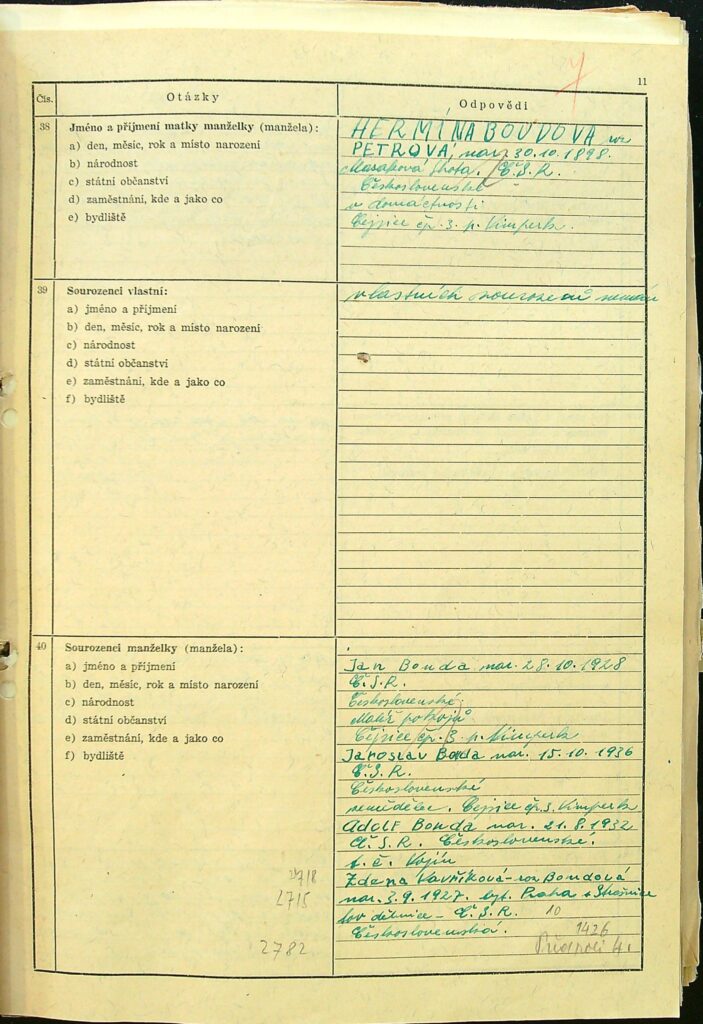 7
11
Čís.
Otázky
Odpovědi
38
Jméno a příjmení matky manželky (manžela):
a) den, měsíc, rok a místo narození
b) národnost
c) státní občanství
d) zaměstnání, kde a jako co
e) bydliště
HERMÍNA BOUDOVÁ roz
PETROVÁ, nar. 30.10.1898.
Masáková Lhota. Č.S.R.
Československé
v domácnosti
čp. 3. p. Vimperk.
39
Sourozenci vlastní:
a) jméno a příjmení
b) den, měsíc, rok a místo narození
c) národnost
d) státní občanství
e) zaměstnání, kde a jako co
f) bydliště
vlastních sourozenců nemám
40
Sourozenci manželky (manžela):
a) jméno a příjmení
b) den, měsíc, rok a místo narození
c) národnost
d) státní občanství
e) zaměstnání, kde a jako co
f) bydliště
Jan Bouda nar. 28.10.1928
Č.S.R.
Československé
Malíř pokojů
čp. 3. p. Vimperk
Jaroslav Bouda nar. 15.10.1936
Č.S.R.
Československé
zemědělec. čp. 3. Vimperk
Adolf Bouda nar. 21.8.1932
Č.S.R. Československé.
t. č. Vojín
Zdena Vavříková - roz Boudová
nar. 3.9.1927. byt. Praha - Strašnice
dělnice - Č.S.R. 10
Československá. 1426
4.
2718
2715
2782